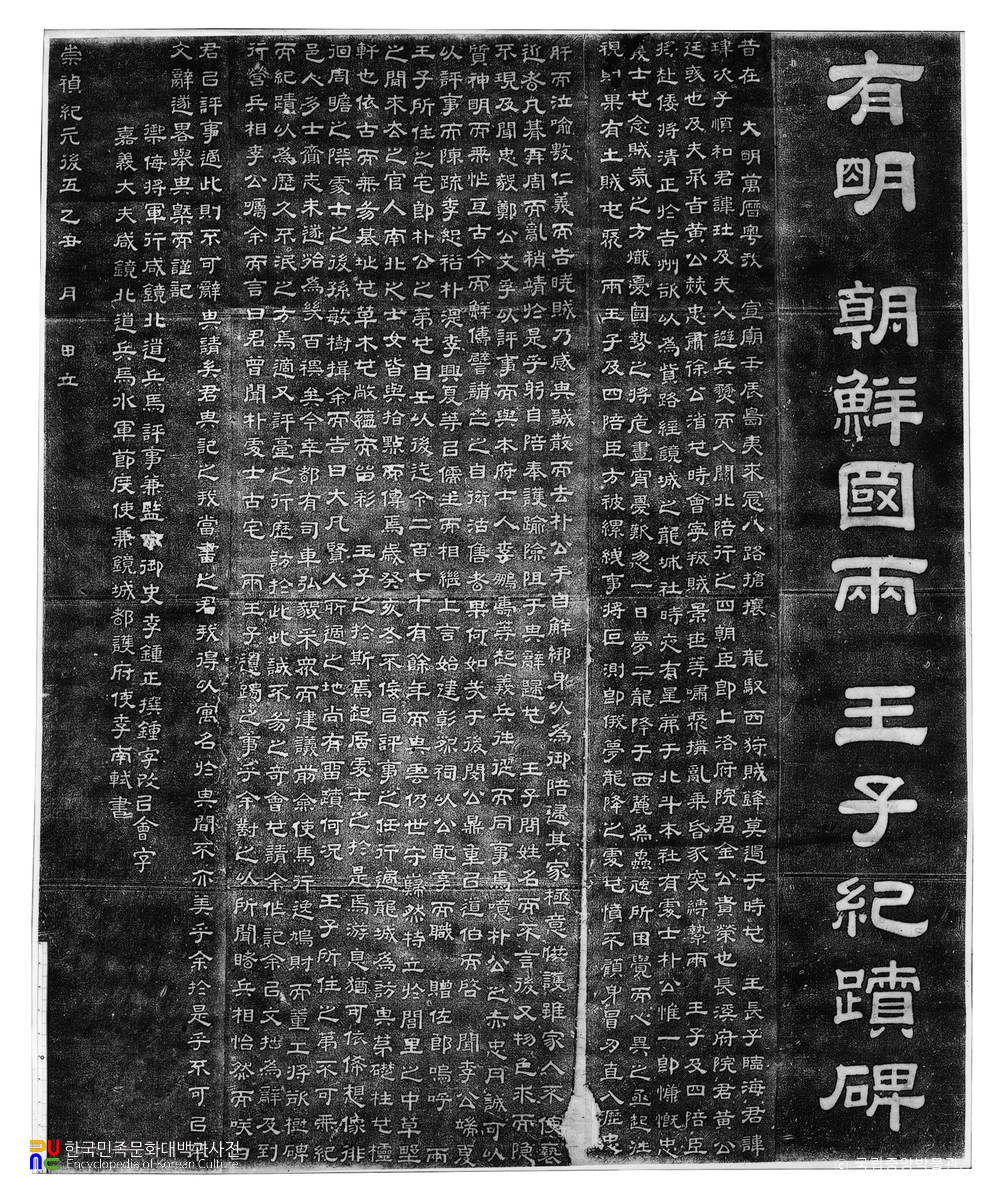 有明 朝鮮國兩 王子紀蹟碑
昔在 大明萬曆粤我 宣廟壬辰島夷來寇八路搶攘 龍馭西狩賊鋒莫遏于時也 王長子臨海君諱
珒次子順和君諱 及夫人避兵燹而入關北陪行之四朝臣卽上洛府院君金公貴榮也長溪府院君黃公
廷彧也及夫承旨黃公 忠肅徐公渻也時會寧叛賊景世等嘯聚搆亂乘昏豕突縛縶兩 王子及四陪臣
將赴倭將清正於吉州欲以為貨路經鏡城之龍城社時夜有星 于北斗本社有處士朴公惟一卽慷慨忠
義士也念賊氛之方熾憂國勢之將危晝宵憂歎忽一日夢二龍降于西麓為蟲虺所困覺而心異之亟起往
視則果有土賊屯聚 兩王子及四陪臣方被縲絏事將叵測卽俄夢龍降之處也憤不顧身冒刃直入瀝忠
肝而泣喩敷仁義而告曉賊乃感其誠散而去朴公手自解綁身以為御陪還其家極意供護雖家人不使
近者凡 再周而亂稍靖於是乎躬自陪奉護踰險阻于其辭歸也 王子問姓名而不言後又物色求而隱
不現及聞忠毅鄭公文孚以評事而與本府士人李鵬壽等起義兵往從而同事焉噫朴公之赤忠丹誠可以
質神明而無怍亘古今而鮮儔譬諸世之自衒沽售者果何如哉于後閔公鼎重以道伯而啓 聞李公端夏
以評事而陳疏李 裕朴 李興夏等以儒生而相繼上言 始建彰烈祠以公配享而職 贈佐郎嗚呼 兩
王子所住之宅卽朴公之第也自壬以後迄今二百七十有餘年而其雲仍世守巋然特立於閭里之中草
之間來去之官人南北之士女皆與拾點而傳焉歲癸亥冬不侫以評事之任行過龍城為訪其茅礎柱也欞
軒也依古而無易基址也草木也 蘊而留彩 王子之於斯焉起居處士之於是焉游息猶可依俙想像徘
徊周瞻之際處士之後孫敏樹揖余而告曰大凡賢人所過之地尚有留蹟何況 王子所住之第不可無紀
邑人多士齎志未遂殆為幾百禩矣今幸都有司車弘毅采衆而建議前僉使馬行逵鳩財而董工將欲樹碑
而紀蹟以為歷久不泯之方焉適又評臺之行歷訪於此此誠不易之奇會也請余作記余以文拙為辭及到
行營兵相李公囑余而言曰君曾聞朴處士古宅 兩王子 躅之事乎余對之以所聞 兵相怡然而咲曰
君以評事過此則不可辭其請矣君其記之我當書之君我得以寓名於其間不亦美乎余於是乎不可以
文辭遂畧舉其槩而謹記
禦侮將軍行咸鏡北道兵馬評事兼監 御史李鍾正撰鍾字改以會字
嘉義大夫咸鏡北道兵馬水軍節度使兼鏡城都護府使李南軾書
崇禎紀元後五乙丑 月 日立
한국민족문화대백과사전
Encyclopedia of Korean Culture
© 국립중앙박물관